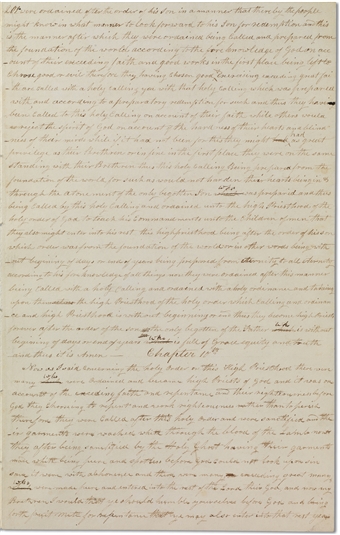 were ordained after the order of his son in a manner that thereby the people
might know in what manner to look forward to his son for redemption and this
is the manner after which they were ordained being called and prepared from
the foundation of the world according to the foreknowledge of God on acc
ount of their exceding faith and good works in the first place being left to
choose good or evil therefore they having chosen good & exercising exceding great faith
are called with a holy calling yea with that holy calling which was prepared
with and according to a preparatory redemption for such and thus they have
been called to this holy calling on account of their faith while others would
reject the spirit of God on account of the hardness of their hearts and blind
ness of their minds while if it had not been for this they might had as great
privilege as their brethren or in fine in the first place they were on the same
standing with their brethren thus this holy calling being prepared from the
foundation of the world for such as would not harden their hearts being in &
through the atonement of the only begotten Son who was prepared and thus
being called by this holy calling and ordained unto the high Priesthood of the
holy order of God to teach his commandments unto the children of men that
they also might enter into his rest this high priesthood being after the order of his son
which order was from the foundation of the world or in other words being with
out beginning of days or end of years being prepared from eternity to all eternity
according to his foreknowledge of all things now they were ordained after this manner
being called with a holy calling and ordained with a holy ordinance and taking
upon them the high Priesthood of the holy order which calling and ordinan
ce and high Priesthood is without beginning or end thus they become high Priests
forever after the order of the son the only begotten of the Father who is without
beginning of days or end of years who is full of Grace equity and truth
and thus it is Amen
Chapter 10th
Now as I said concerning the holy order or this High Priesthood there were
many who were ordained and became high Priests of God and it was on
account of their exceding faith and repentance and their righteousness before
God they choosing to repent and work righteousness rather than to perish
therefore they were called after this holy order and were sanctified and the
ir garments were washed white through the blood of the Lamb now
they after being sanctified by the Holy Ghost having their garments
made white being pure and spotless before God could not look upon sin
save it were with abhorrence and there were many exceding great many
who were made pure and entered into the rest of the Lord their God and now my
Brethren I would that ye should humble yourselves before God and bring
forth fruit meet for repentance that ye may also enter into that rest yea